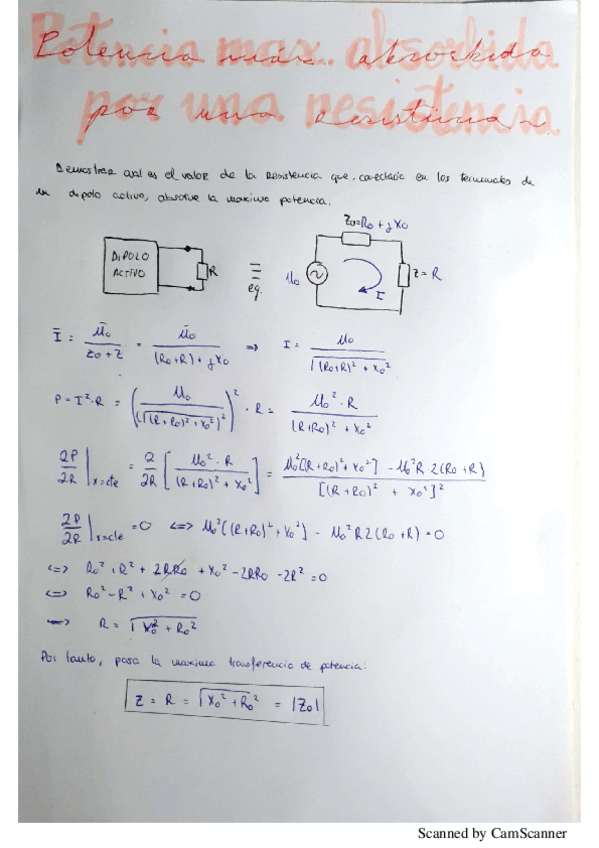 Potencia max. absorbida
por una resistencia
Demostrar cual es el valor de la resistencia que, conectada en los terminales de
un dipolo activo, absorbe la maxima potencia.
Zo=Ro + jXo
DIPOLO
ACTIVO
R
≡
eq.
Uo
I
Z = R
Ī = Ūo / (Zo + Z) = Ūo / ((Ro+R) + jXo) => I = Uo / √((Ro+R)² + Xo²)
P = I²·R = (Uo / (√((R+Ro)² + Xo²)²))² · R = Uo²·R / ((R+Ro)² + Xo²)
∂P/∂R |x=cte = ∂/∂R [Uo²·R / ((R+Ro)² + Xo²)] = (Uo²[(R+Ro)² + Xo²] - Uo²R 2(Ro+R)) / [(R+Ro)² + Xo²]²
∂P/∂R |x=cte = 0 <=> Uo²[(R+Ro)² + Xo²] - Uo²R2(Ro+R) = 0
<=> Ro² + R² + 2RRo + Xo² - 2RRo - 2R² = 0
<=> Ro² - R² + Xo² = 0
=> R = √(Xo² + Ro²)
Por tanto, para la maxima transferencia de potencia:
Z = R = √(Xo² + Ro²) = |Zo|
Scanned by CamScanner